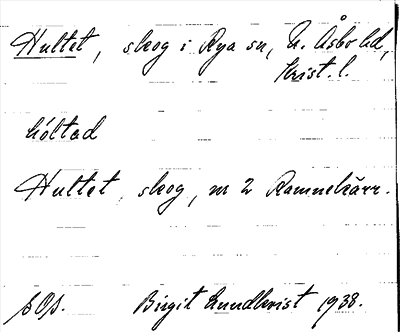 Hultet, skog i Rya sn, N. Åsbo hd,
Krist. l.
hóltad
Hultet, skog, nr 2 Ramnekärr.
Birgit Lundkvist 1938.